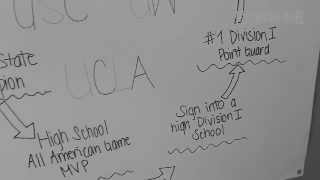 USC
UW
#1 Division I
Point Guard
State
pion
UCLA
Sign into a
high Division I
School
High School
All American Game
MVP